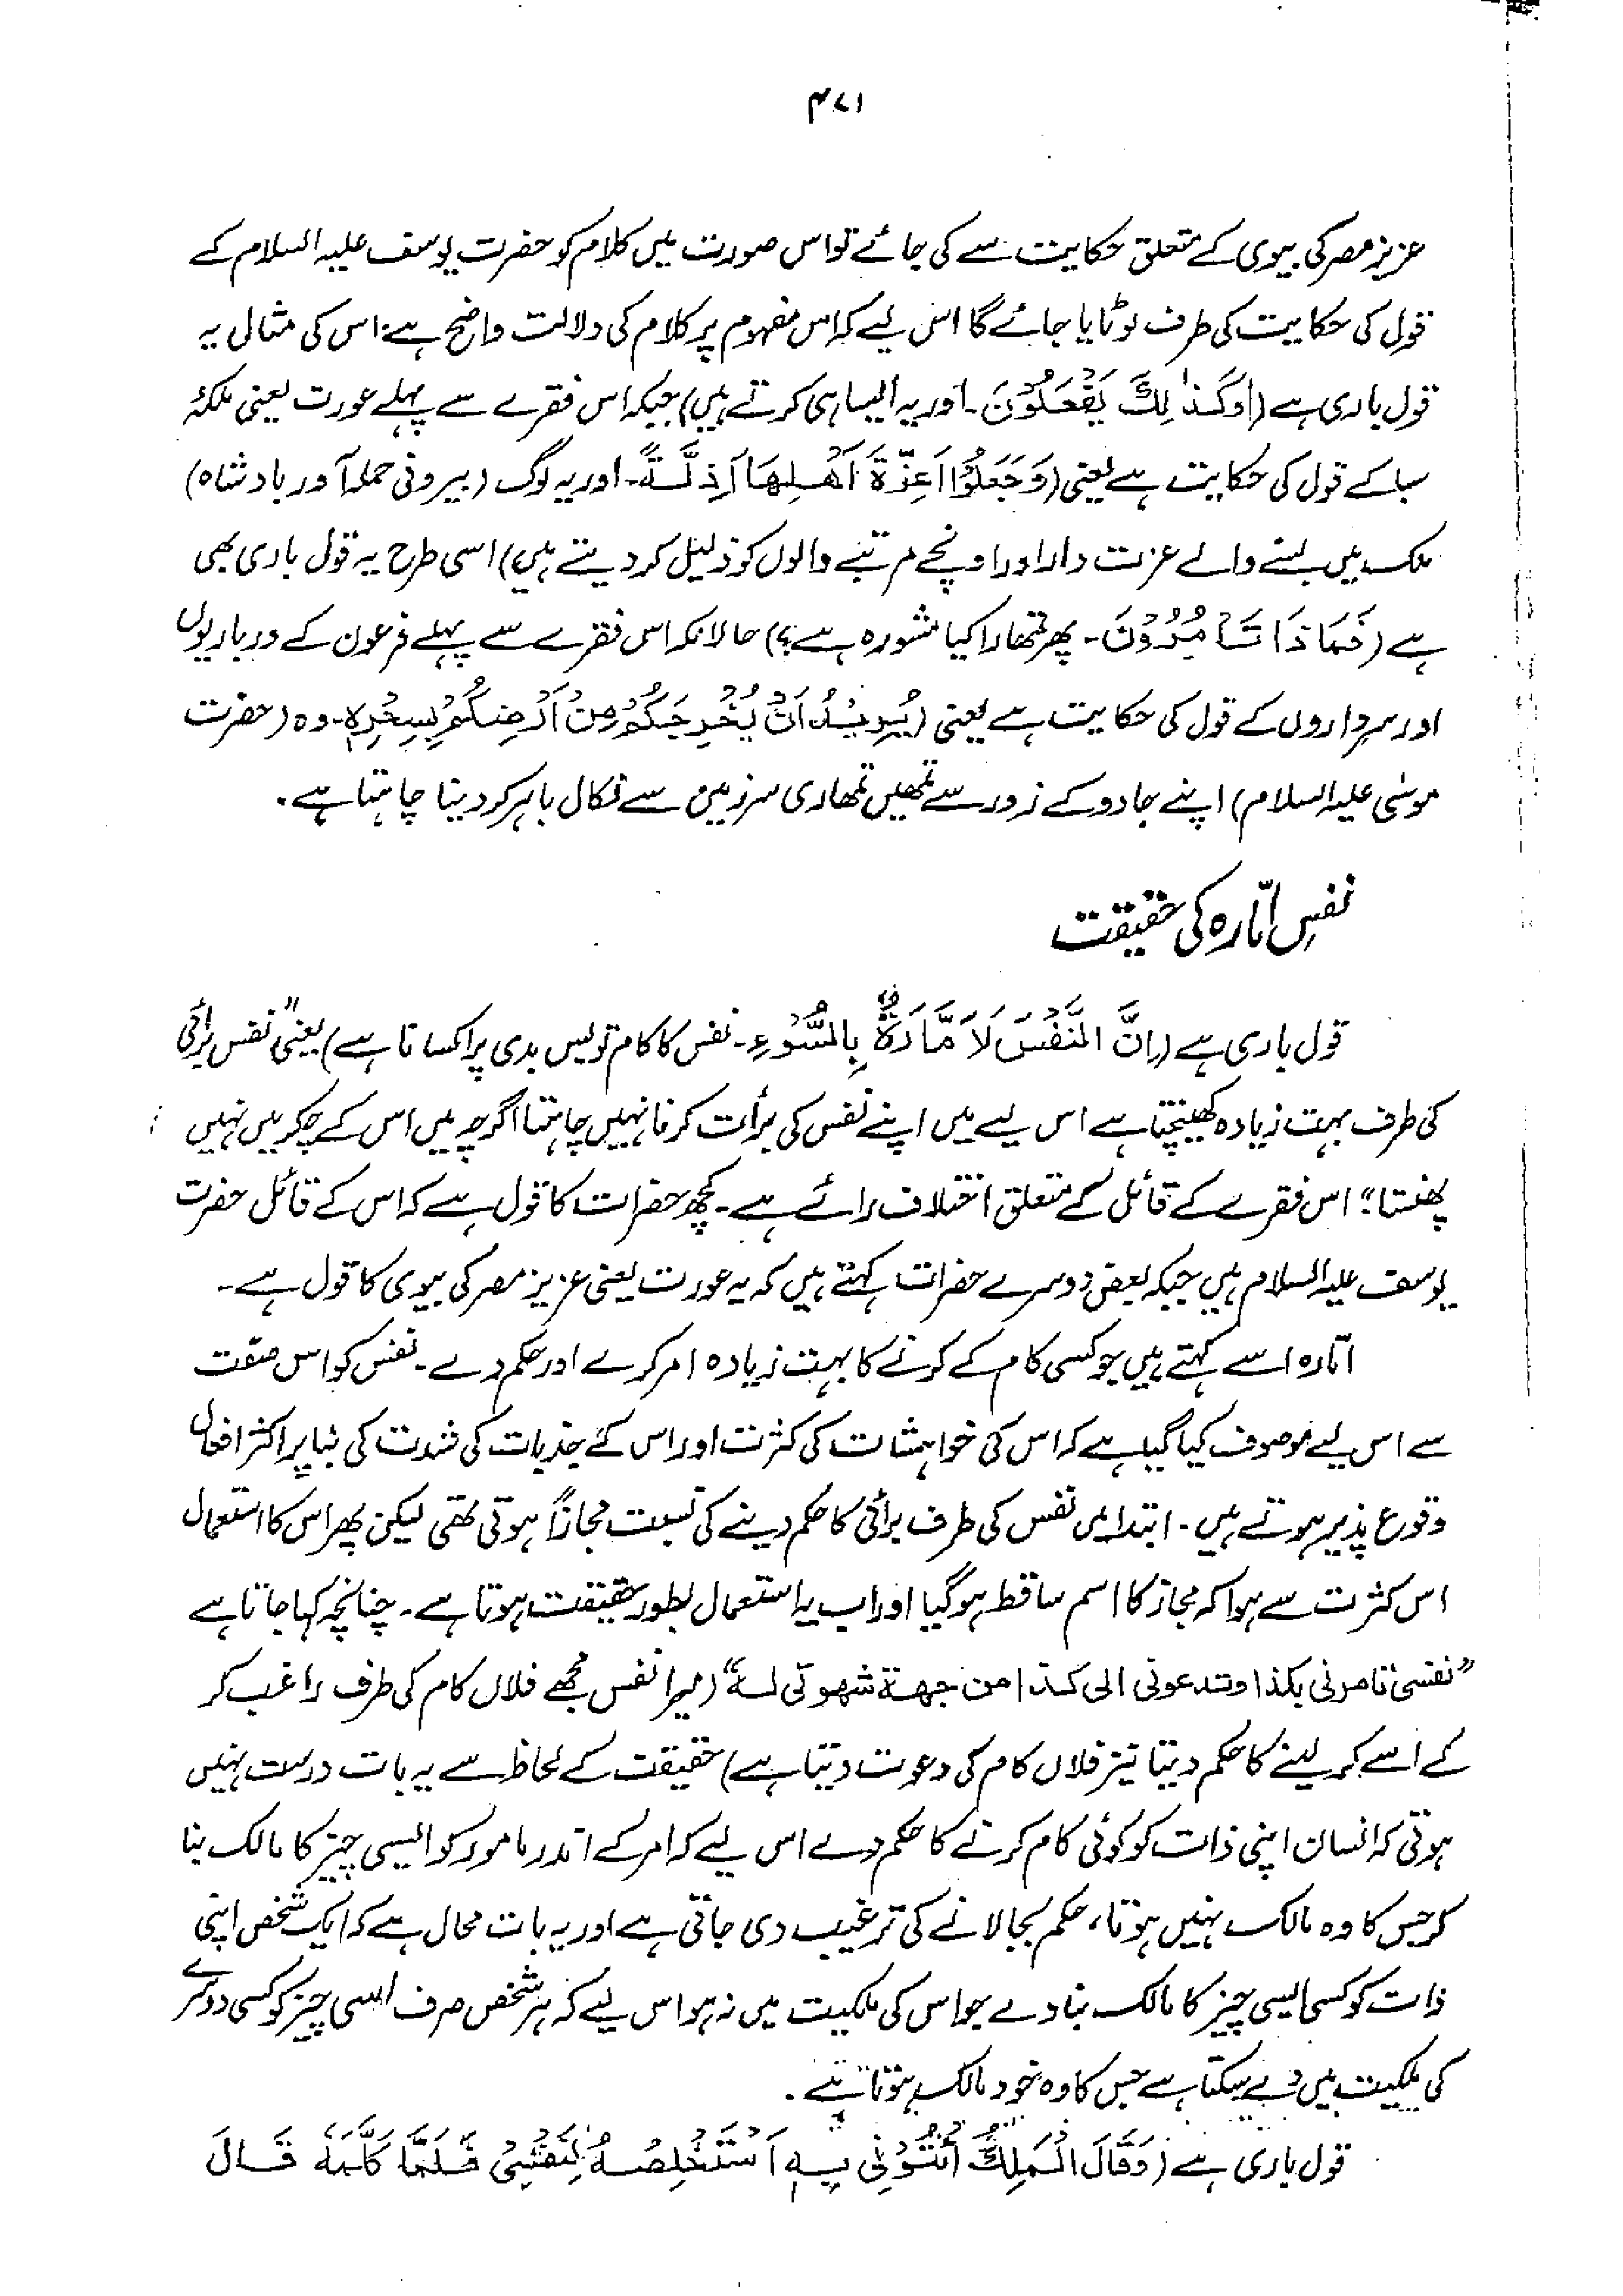 ۴۷۱
عزیز مصر کی بیوی کے متعلق حکایت سے کی جائے تو اس صورت میں کلام کو حضرت یوسف علیہ السلام کے
قول کی حکایت کی طرف لوٹایا جائے گا اس لیے کہ اس مفہوم پر کلام کی دلالت واضح ہے، اس کی مثال یہ
قول باری ہے (وَكَذٰلِكَ يَفْعَلُوْنَ۔ اور یہ ایسا ہی کرتے ہیں) جبکہ اس فقرے سے پہلے عورت یعنی ملکۂ
سبا کے قول کی حکایت ہے یعنی (وَجَعَلُوْا اَعِزَّةَ اَهْلِهَا اَذِلَّةً۔ اور یہ لوگ (بیرونی حملہ آور بادشاہ)
ملک میں بسنے والے عزت دار اور اونچے مرتبے والوں کو ذلیل کر دیتے ہیں) اسی طرح یہ قول باری بھی
ہے (فَمَاذَا تَأْمُرُوْنَ۔ پھر تمھارا کیا مشورہ ہے؟) حالانکہ اس فقرے سے پہلے فرعون کے درباریوں
اور سرداروں کے قول کی حکایت ہے یعنی (يُرِيْدُ اَنْ يُّخْرِجَكُمْ مِنْ اَرْضِكُمْ بِسِحْرِهٖ۔ وہ (حضرت
موسٰی علیہ السلام) اپنے جادو کے زور سے تمھیں تمھاری سرزمین سے نکال باہر کر دینا چاہتا ہے۔
نفسِ امّارہ کی حقیقت
قول باری ہے (اِنَّ النَّفْسَ لَاَمَّارَةٌ بِالسُّوْءِ۔ نفس کا کام تو بس بدی پر اکسانا ہے) یعنی "نفس برائی
کی طرف بہت زیادہ کھینچتا ہے اس لیے میں اپنے نفس کی برأت کرنا نہیں چاہتا اگرچہ میں اس کے چکر میں نہیں
پھنستا" اس فقرے کے قائل کے متعلق اختلاف رائے ہے۔ کچھ حضرات کا قول ہے کہ اس کے قائل حضرت
یوسف علیہ السلام ہیں جبکہ بعض دوسرے حضرات کہتے ہیں کہ یہ عورت یعنی عزیز مصر کی بیوی کا قول ہے۔
امّارہ اسے کہتے ہیں جو کسی کام کے کرنے کا بہت زیادہ امر کرے اور حکم دے۔ نفس کو اس صفت
سے اس لیے موصوف کیا گیا ہے کہ اس کی خواہشات کی کثرت اور اس کے جذبات کی شدت کی بنا پر اکثر افعال
وقوع پذیر ہوتے ہیں۔ ابتدا میں نفس کی طرف برائی کا حکم دینے کی نسبت مجازاً ہوتی تھی لیکن پھر اس کا استعمال
اس کثرت سے ہوا کہ مجاز کا اسم ساقط ہو گیا اور اب یہ استعمال بطور حقیقت ہوتا ہے۔ چنانچہ کہا جاتا ہے
"نفسی تامرنی بکذا وتدعونی الی کذا من جهة شهوتی له" (میرا نفس مجھے فلاں کام کی طرف راغب کر
کے اسے کر لینے کا حکم دیتا نیز فلاں کام کی دعوت دیتا ہے) حقیقت کے لحاظ سے یہ بات درست نہیں
ہوتی کہ انسان اپنی ذات کو کوئی کام کرنے کا حکم دے اس لیے کہ امر کے اندر مامور کو ایسی چیز کا مالک بنا
کر جس کا وہ مالک نہیں ہوتا، حکم بجا لانے کی ترغیب دی جاتی ہے اور یہ بات محال ہے کہ ایک شخص اپنی
ذات کو کسی ایسی چیز کا مالک بنا دے جو اس کی ملکیت میں نہ ہو اس لیے کہ ہر شخص صرف اسی چیز کو کسی دوسرے
کی ملکیت میں دے سکتا ہے جس کا وہ خود مالک ہوتا ہے۔
قول باری ہے (وَقَالَ الْمَلِكُ ائْتُوْنِيْ بِهٖ اَسْتَخْلِصْهُ لِنَفْسِيْ فَلَمَّا كَلَّمَهٗ قَالَ